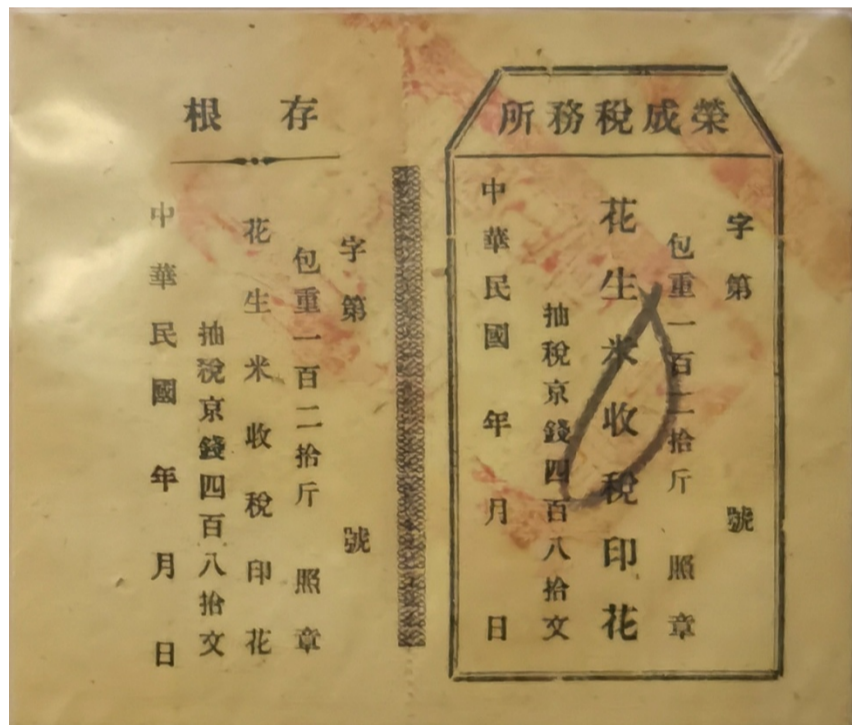 榮成稅務所
字第　號
包重一百二拾斤　照章
花生米收稅印花
抽稅京錢四百八拾文
中華民國　年　月　日
存根
字第　號
包重一百二拾斤　照章
花生米收稅印花
抽稅京錢四百八拾文
中華民國　年　月　日